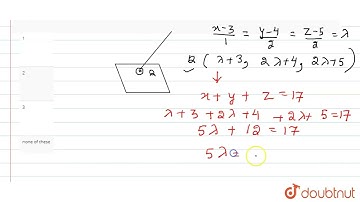 1
2
3
none of these
x-3/1 = y-4/2 = z-5/2 = λ
Q (λ+3, 2λ+4, 2λ+5)
Q
x + y + z = 17
λ + 3 + 2λ + 4 + 2λ + 5 = 17
5λ + 12 = 17
5λ =
doubtnut